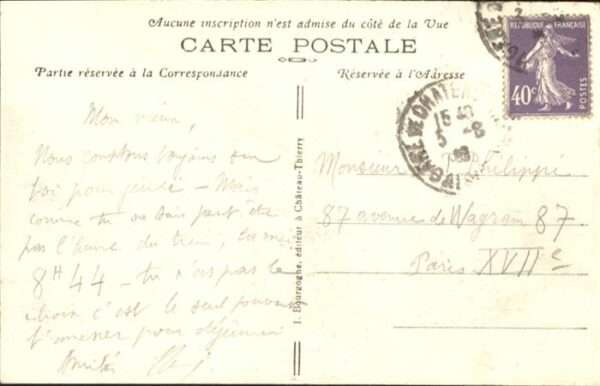 Aucune inscription n'est admise du côté de la Vue
CARTE POSTALE
Partie réservée à la Correspondance
Réservée à l'Adresse
RÉPUBLIQUE FRANÇAISE
40c
POSTES
GARE DE CHATEAU
15
5 -8
Mon vieux,
Nous comptons toujours sur
toi pour jeudi – Mais
comme tu ne sais peut être
pas l'heure du train,
8H44 – tu n'as pas le
choix c'est le seul pouvant
t'amener pour déjeuner
Amitiés
I. Bourgogne, éditeur à Château-Thierry
Monsieur Philippe
87 avenue de Wagram 87
Paris XVIIe